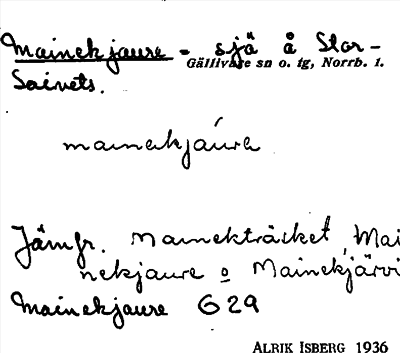 Mainekjaure - sjä å Stor-
Gällivare sn o. tg, Norrb. l.
Saivets.
mainekjaúre
Jämfr. Mainekträsket, Mai
nekjaure o Mainekjärvi
Mainekjaure G 29
ALRIK ISBERG 1936